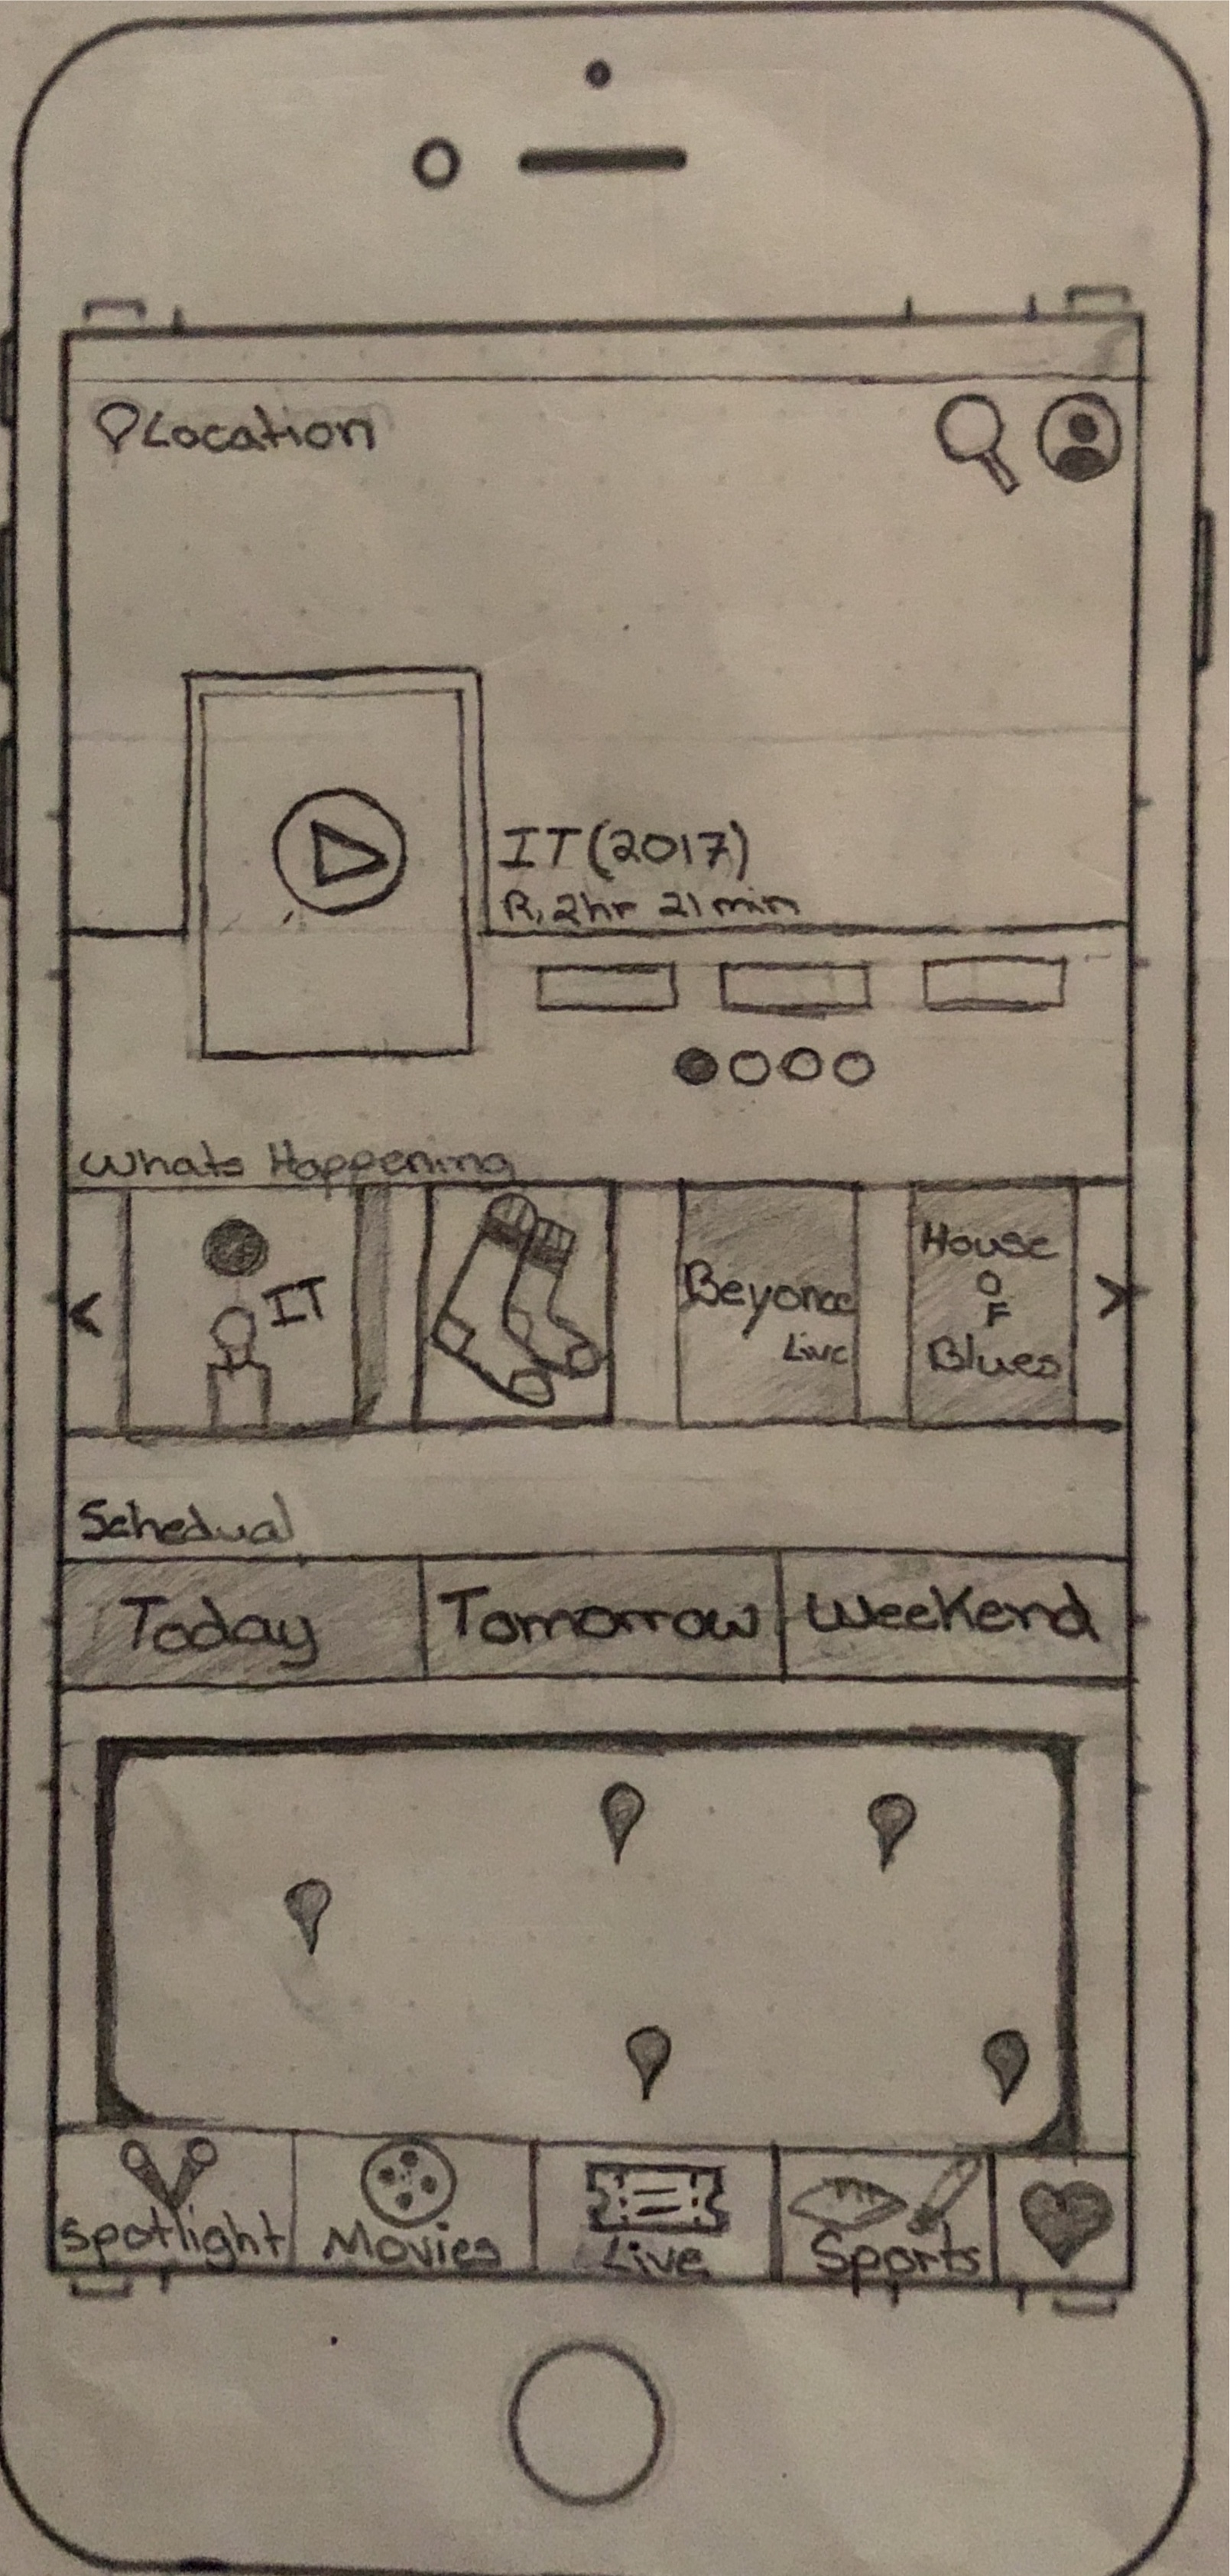 Location
IT (2017)
R, 2hr 21min
Whats Happening
IT
Beyonce
Live
House
O
F
Blues
Schedual
Today
Tomorrow
Weekend
Spotlight
Movies
Live
Sports